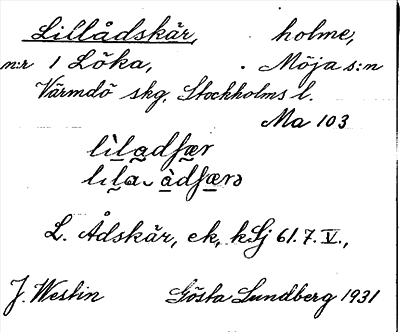 Lillådskär, holme,
n:r 1 Löka, Möja s:n
Värmdö skg, Stockholms l.
Ma 103
lìladfær
lıla àdfærə
L. Ådskär, ek, kSj 61.7.V.,
J. Westin Gösta Lundberg 1931